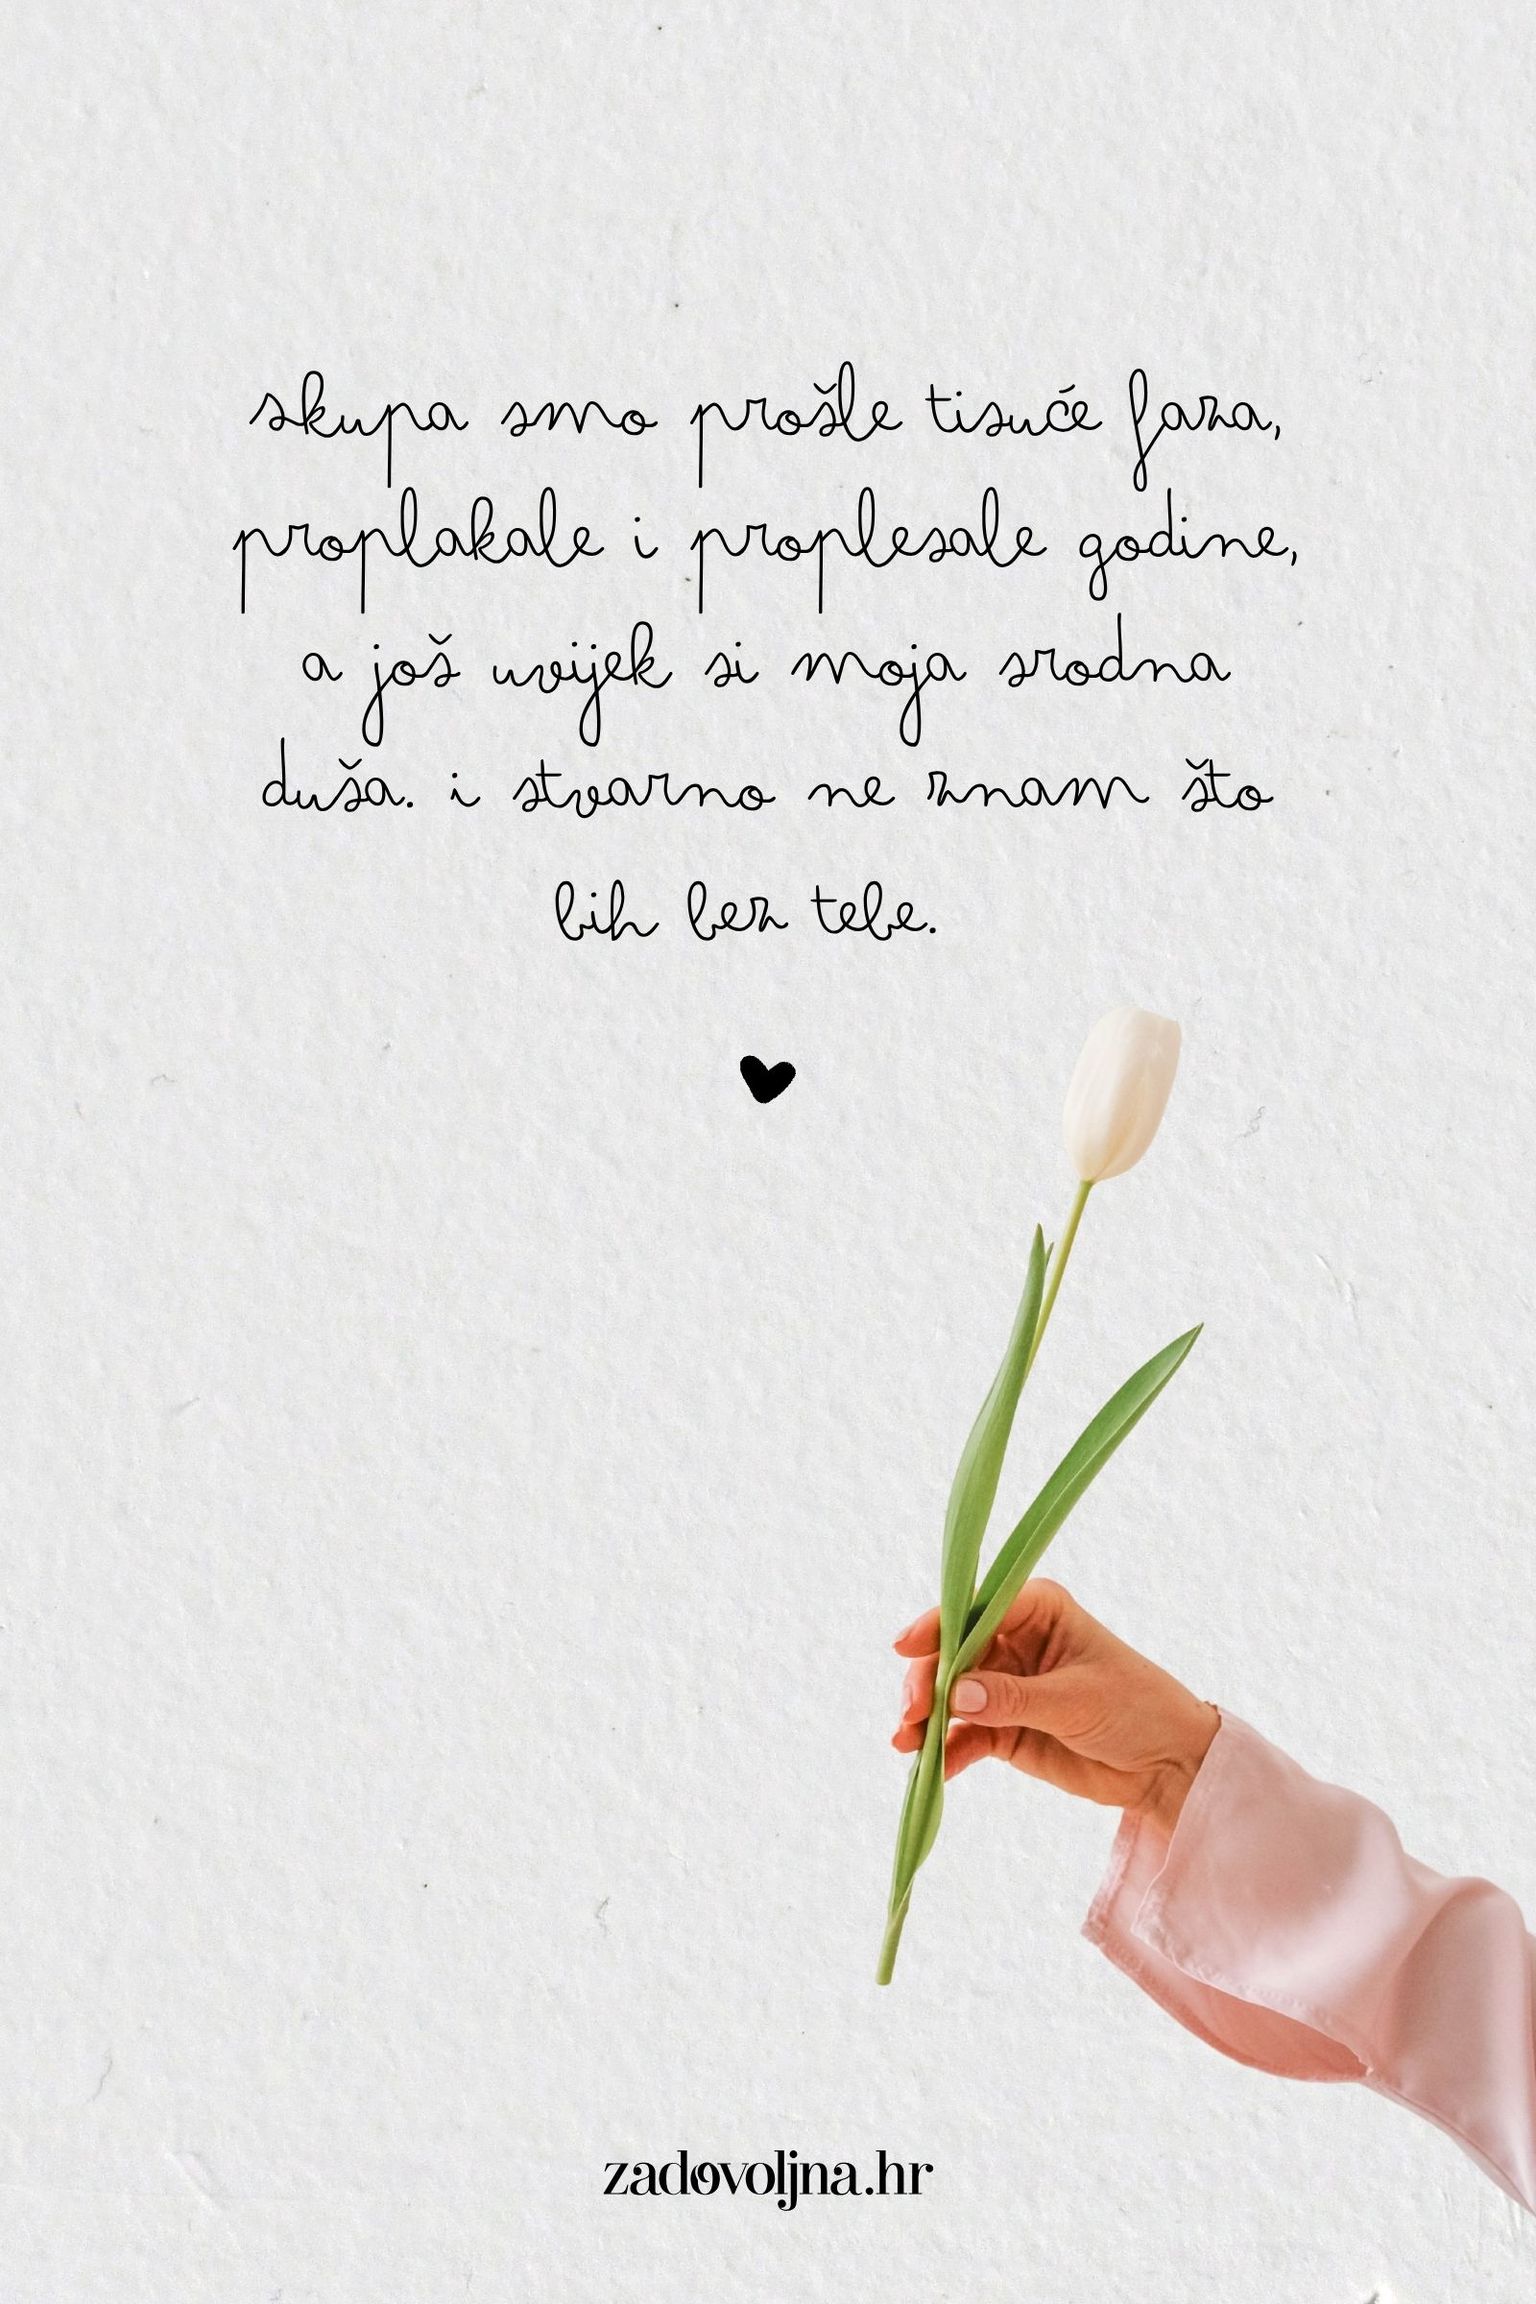 skupa smo prošle tisuće faza,
proplakale i proplesale godine,
a još uvijek si moja srodna
duša. i stvarno ne znam što
bih bez tebe.
zadovoljna.hr